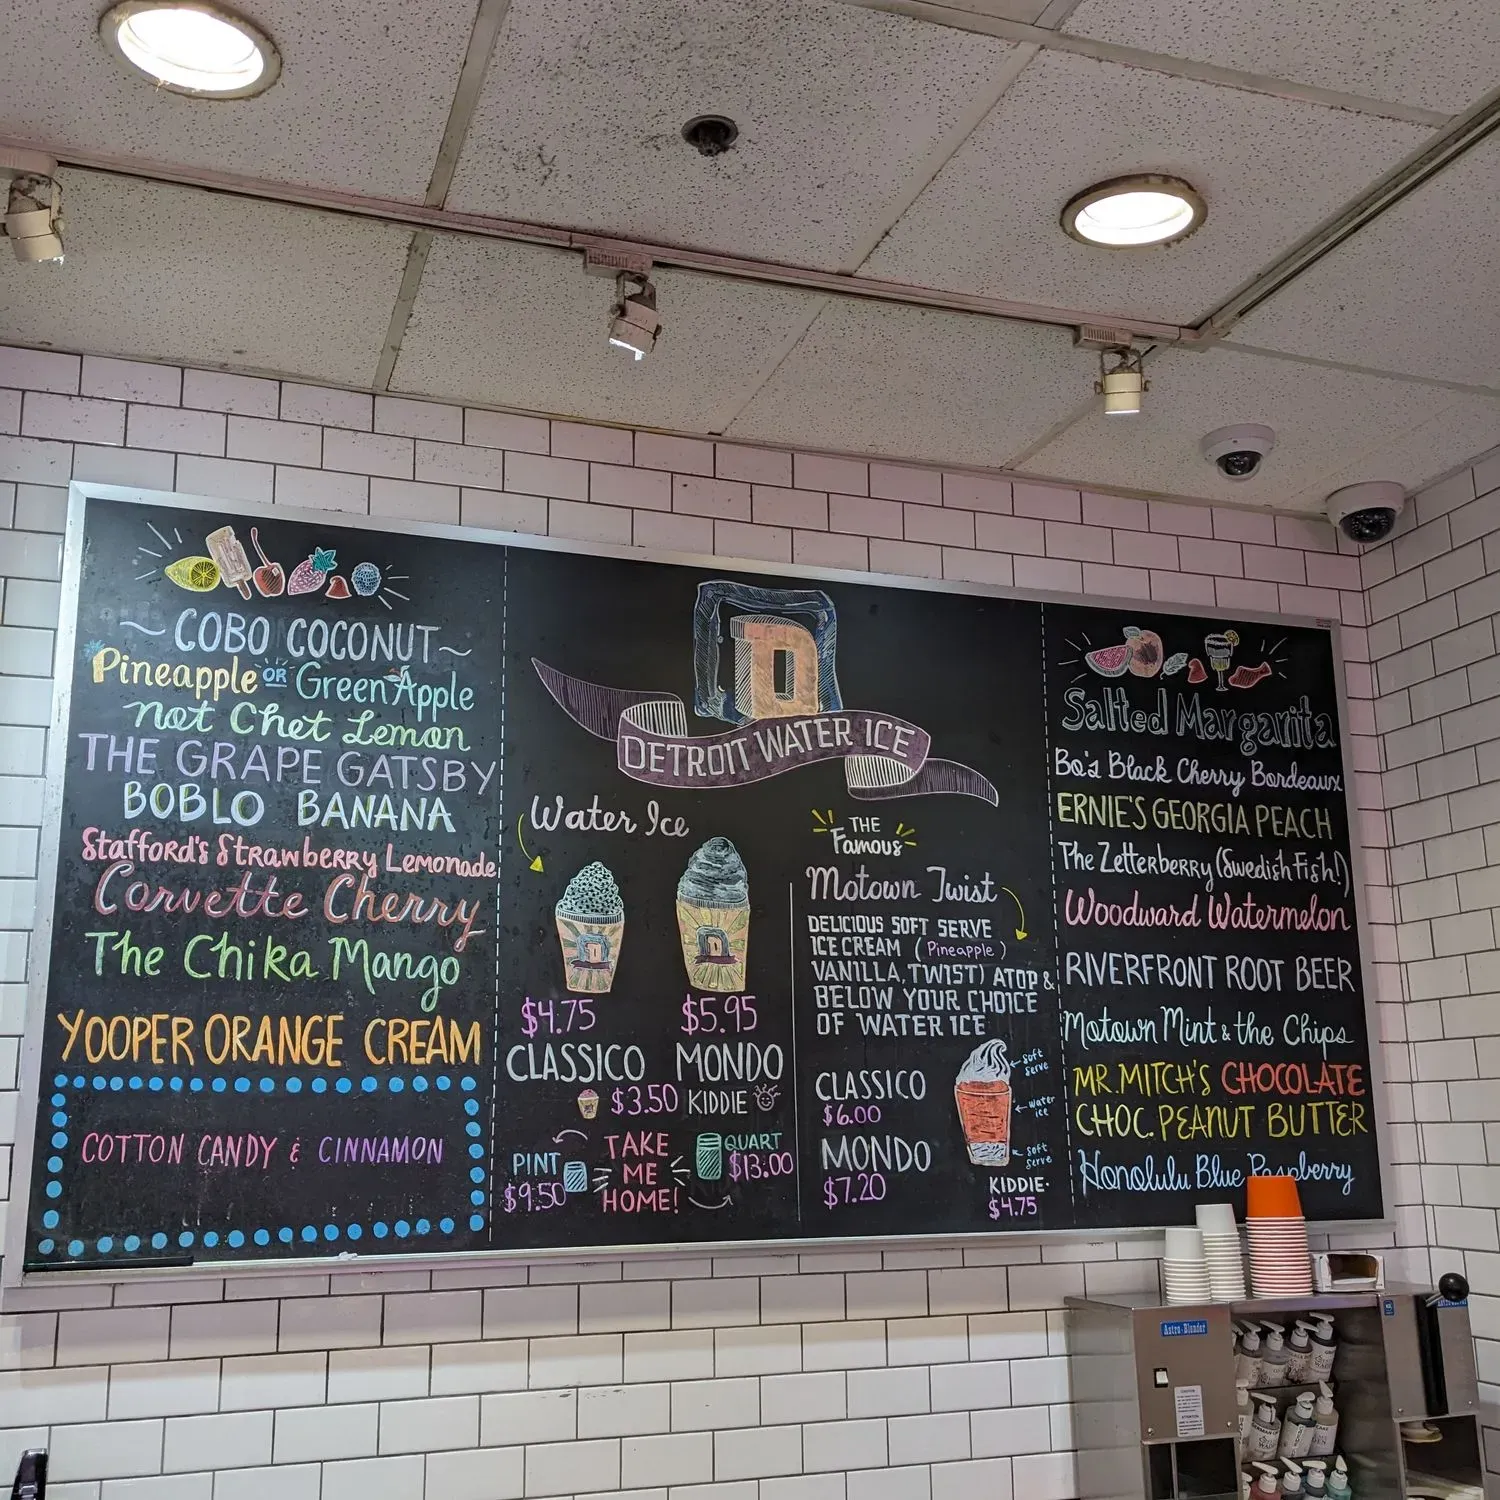 COBO COCONUT
Pineapple OR Green Apple
not Chet Lemon
THE GRAPE GATSBY
BOBLO BANANA
Stafford's Strawberry Lemonade
Corvette Cherry
The Chika Mango
YOOPER ORANGE CREAM
COTTON CANDY & CINNAMON
D
DETROIT WATER ICE
Water Ice
D
D
$4.75
$5.95
CLASSICO
MONDO
$3.50 KIDDIE
PINT
$9.50
TAKE
ME
HOME!
QUART
$13.00
THE
Famous
Motown Twist
DELICIOUS SOFT SERVE
ICE CREAM (Pineapple)
VANILLA, TWIST) ATOP &
BELOW YOUR CHOICE
OF WATER ICE
CLASSICO
$6.00
MONDO
$7.20
soft
serve
water
ice
soft
serve
KIDDIE-
$4.75
Salted Margarita
Bo's Black Cherry Bordeaux
ERNIE'S GEORGIA PEACH
The Zetterberry (Swedish Fish!)
Woodward Watermelon
RIVERFRONT ROOT BEER
Motown Mint & the Chips
MR. MITCH'S CHOCOLATE
CHOC. PEANUT BUTTER
Honolulu Blue Raspberry
Astro-Blender